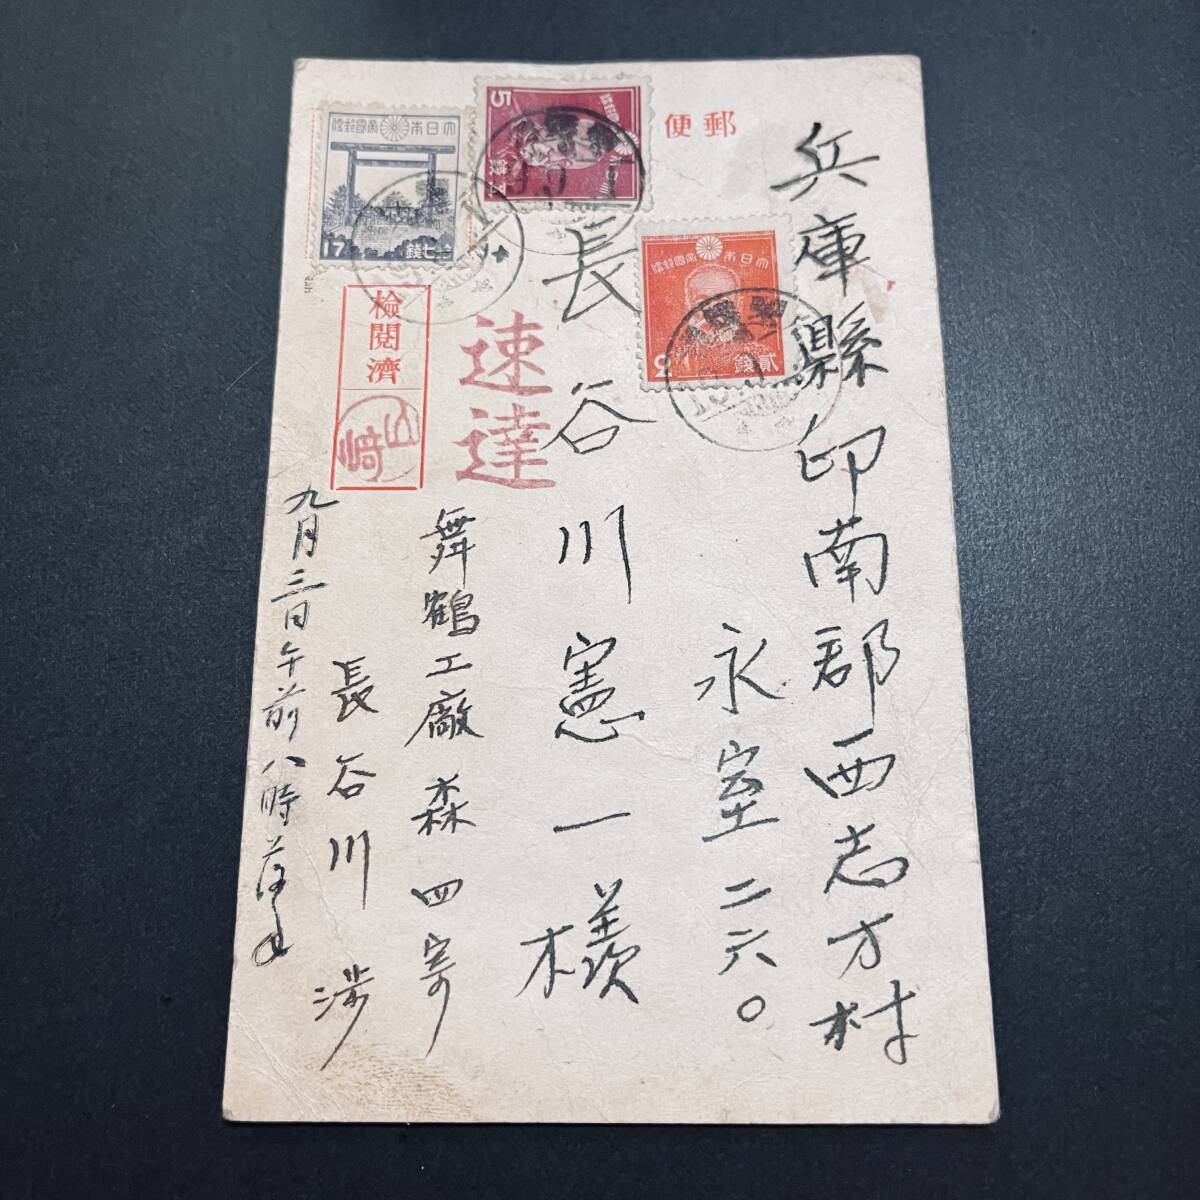 郵便
兵庫縣印南郡西志方村
永室二六〇
長谷川憲一様
速達
検閲済
山崎
舞鶴工廠森四寄
長谷川渉
九月三日午前八時
大日本帝國郵便
17
十七銭
5
五銭
大日本帝國郵便
2
貳銭